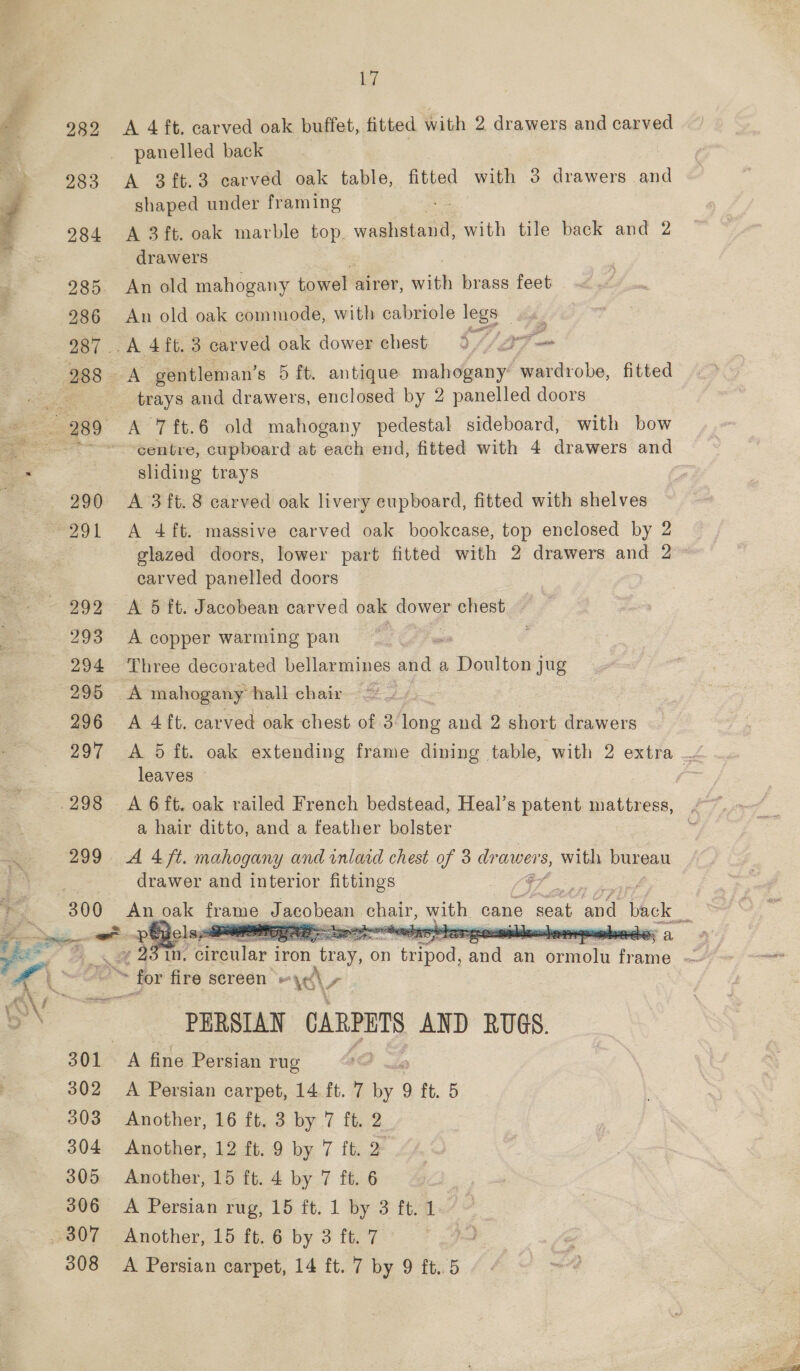 17
282 A 4 ft. carved oak buffet, fitted with 2 drawers and carved
panelled back
283 A 3 ft. 3 carved oak table, fitted with 3 drawers and
shaped under framing
284 A 3 ft. oak marble top washstand, with tile back and 2
drawers
285 An old mahogany towel airer, with brass feet
286 An old oak commode, with cabriole legs
287 A 4 ft. 3 carved oak dower chest
288 A gentleman's 5 ft. antique mahogany wardrobe, fitted
trays and drawers, enclosed by 2 panelled doors
289 A 7 ft. 6 old mahogany pedestal sideboard, with bow
centre, cupboard at each end, fitted with 4 drawers and
sliding trays
290 A 3 ft. 8 carved oak livery cupboard, fitted with shelves
291 A 4 ft. massive carved oak bookcase, top enclosed by 2
glazed doors, lower part fitted with 2 drawers and 2
carved panelled doors
292 A 5 ft. Jacobean carved oak dower chest
293 A copper warming pan
294 Three decorated bellarmines and a Doulton jug
295 A mahogany hall chair
296 A 4 ft. carved oak chest of 3 long and 2 short drawers
297 A 5 ft. oak extending frame dining table, with 2 extra
leaves
298 A 6 ft. oak railed French bedstead, Heal's patent mattress,
a hair ditto, and a feather bolster
299 A 4 ft. mahogany and inlaid chest of 3 drawers, with bureau
drawer and interior fittings
300 An oak frame Jacobean chair, with cane seat and back
a
23 in. circular iron tray, on tripod, and an ormolu frame
for fire screen
PERSIAN CARPETS AND RUGS.
301 A fine Persian rug
302 A Persian carpet, 14 ft. 7 by 9 ft. 5
303 Another, 16 ft. 3 by 7 ft. 2
304 Another, 12 ft. 9 by 7 ft. 2
305 Another, 15 ft. 4 by 7 ft. 6
306 A Persian rug, 15 ft. 1 by 3 ft. 1
307 Another, 15 ft. 6 by 3 ft. 7
308 A Persian carpet, 14 ft. 7 by 9 ft. 5